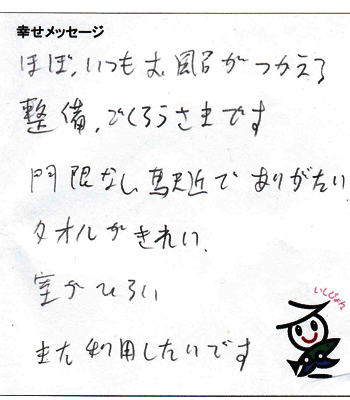 幸せメッセージ
ほぼ、いつもお風呂がつかえる
整備、ごくろうさまです
門限なし 駅近で ありがたい
タオルが きれい、
室が ひろい
また 利用したいです
いしぴょん